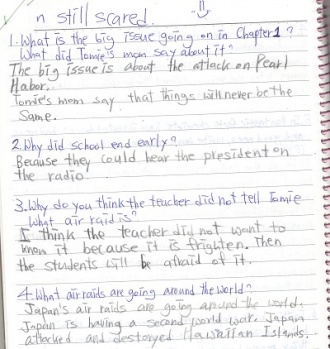 n still scared.
1. What is the big issue going on in Chapter 1?
What did Tomie's mom say about it?
The big issue is about the attack on Pearl
Habor.
Tomie's mom say that things will never be the
Same.
2. Why did school end early?
Because they could hear the president on
the radio.
3. Why do you think the teacher did not tell Tomie
what air raid is?
I think the teacher did not want to
know it because it is frighten. Then
the students will be afraid of it.
4. What air raids are going around the world?
Japan's air raids are going around the world.
Japan is having a second world war. Japan
attacked and destoryed Hawaiian Islands.